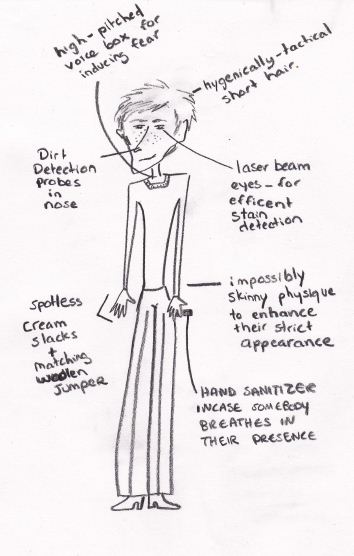 high-pitched
voice box for
inducing fear
hygenically-tactical
short hair.
Dirt
Detection
probes
in
nose
laser beam
eyes - for
efficent
stain
detection
impossibly
skinny physique
to enhance
their strict
appearance
spotless
cream
slacks
+
matching
woolen
jumper
HAND SANITIZER
INCASE SOMEBODY
BREATHES IN
THEIR PRESENCE